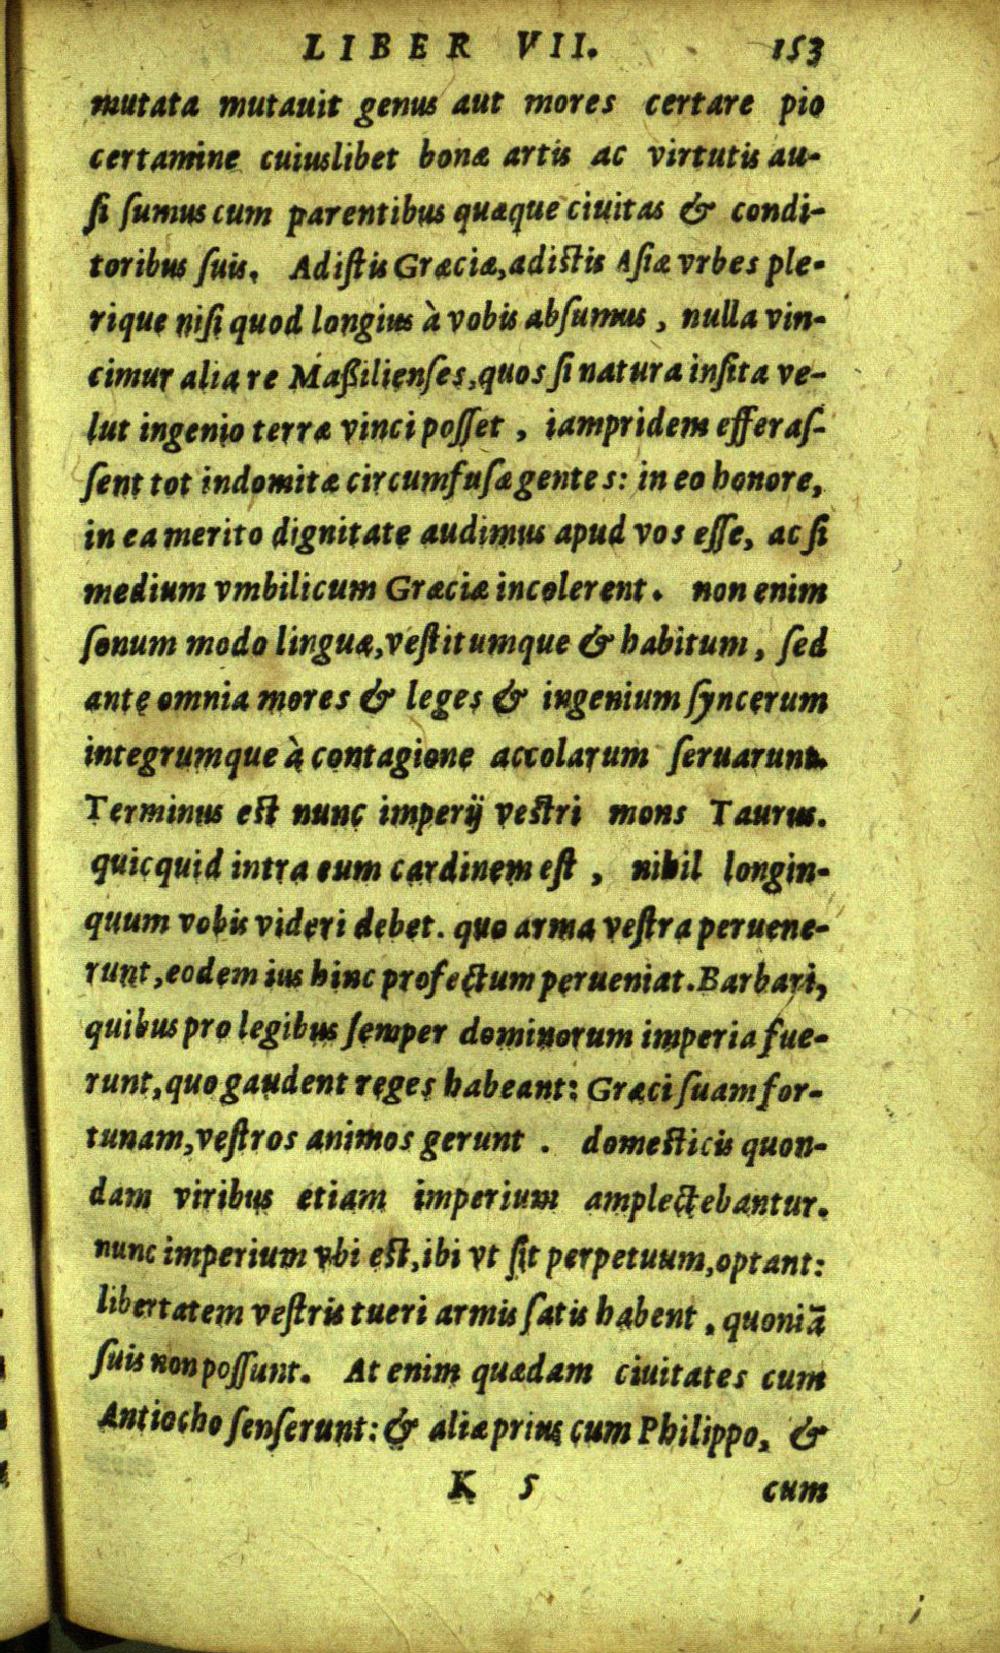 LIBER VII. 153
mutata mutauit genus aut mores certare pio
certamine cuiuslibet bonæ artis ac virtutis au-
ſi ſumus cum parentibus quæque ciuitas & condi-
toribus ſuis. Adiſtis Græciæ, adiſtis Aſiæ vrbes ple-
rique niſi quod longius à vobis abſumus, nulla vin-
cimur alia re Maßilienſes, quos ſi natura inſita ve-
lut ingenio terræ vinci poſſet, iampridem efferaſ-
ſent tot indomitæ circumfuſæ gentes: in eo honore,
in ea merito dignitate audimus apud vos eſſe, ac ſi
medium vmbilicum Græciæ incolerent. non enim
ſonum modo linguæ, veſtitumque & habitum, ſed
ante omnia mores & leges & ingenium ſyncerum
integrumque à contagione accolarum ſeruarunt.
Terminus eſt nunc imperij veſtri mons Taurus.
quicquid intra eum cardinem eſt, nihil longin-
quum vobis videri debet. quo arma veſtra peruene-
runt, eodem ius hinc profectum perueniat. Barbari,
quibus pro legibus ſemper dominorum imperia fue-
runt, quo gaudent reges habeant: Græci ſuam for-
tunam, veſtros animos gerunt. domeſticis quon-
dam viribus etiam imperium amplectebantur.
nunc imperium vbi eſt, ibi vt ſit perpetuum, optant:
libertatem veſtris tueri armis ſatis habent, quoniā
ſuis non poſſunt. At enim quædam ciuitates cum
Antiocho ſenſerunt: & aliæ prius cum Philippo, &
K 5 cum